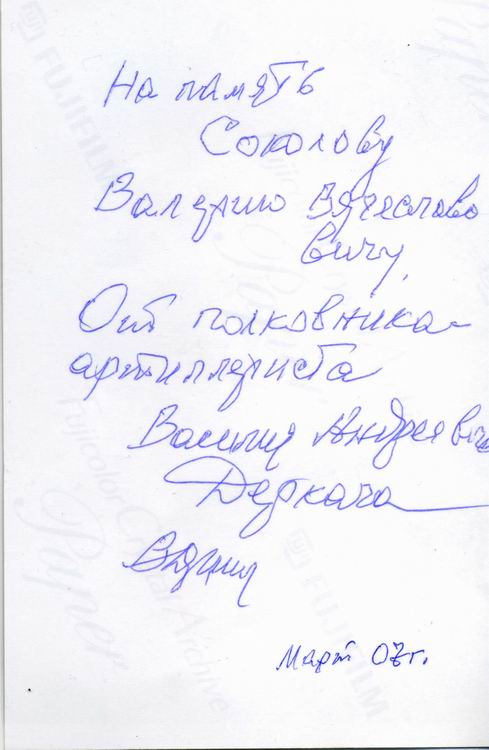 На память
Соколову
Валерию Вячеславо
вичу,
От полковника-
артиллериста
Василия Андреевича
Деркача
Март 07г.
FUJIFILM
Fujicolor Crystal Archive
Paper
FUJIFILM